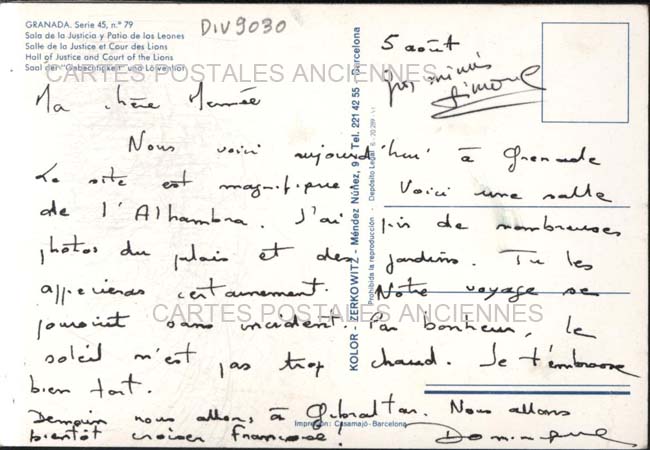 GRANADA. Serie 45, n.º 79
Sala de la Justicia y Patio de los Leones
Salle de la Justice et Cour des Lions
Hall of Justice and Court of the Lions
Saal der "Gebechtigkeit" und Löwenhof
DIV9030
CARTES POSTALES ANCIENNES
5 août
Gros mimis
Simone
Ma chère Mémée
Nous voici aujourd'hui à Grenade
Le site est magnifique. Voici une salle
de l'Alhambra. J'ai pris de nombreuses
photos du palais et des jardins. Tu les
apprécieras certainement. Notre voyage se
poursuit sans incident. Par bonheur, le
CARTES POSTALES ANCIENNES
soleil n'est pas trop chaud. Je t'embrasse
bien fort.
Demain nous allons à Gibraltar. Nous allons
bientôt croiser Françoise!
Dominique
KOLOR - ZERKOWITZ - Méndez Núñez, 9 - Tel. 221 42 55 - Barcelona
Prohibida la reproducción - Depósito Legal B. 20.299
Impresión: Casamajó-Barcelona